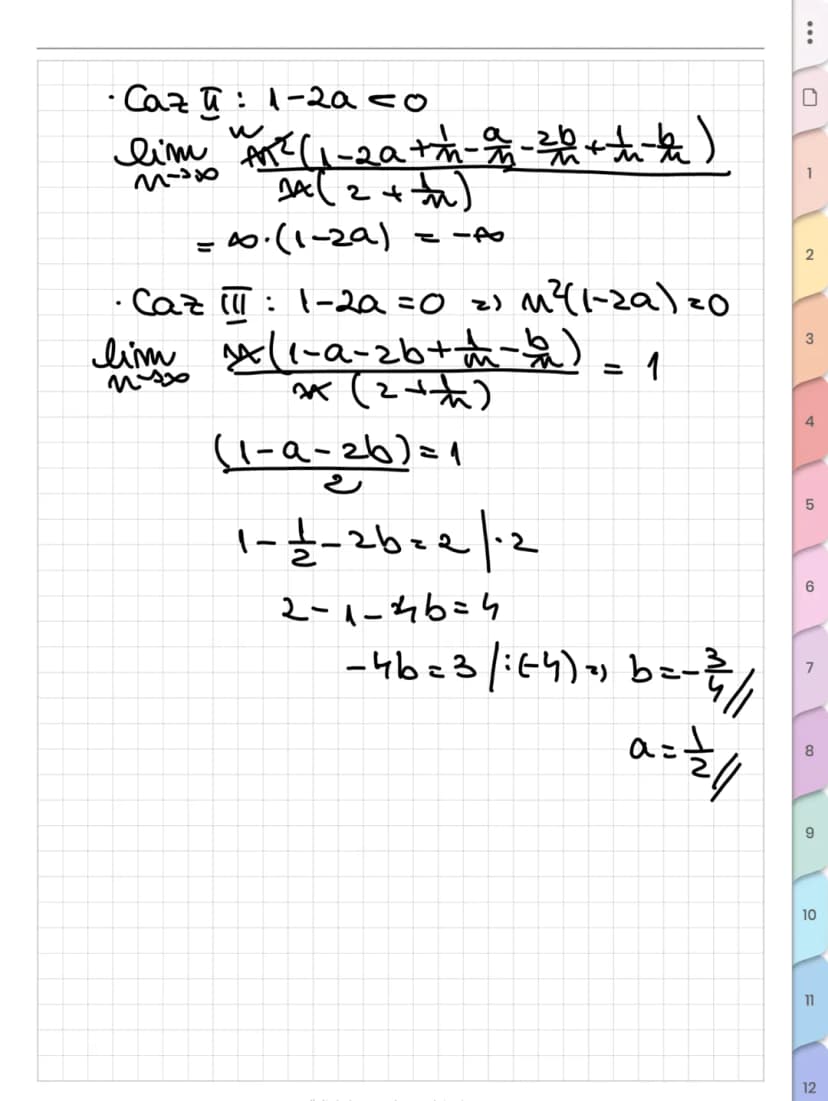 · Caz II : 1-2a < 0
lim n→∞ n²(1-2a+1/n-a/n-2b/n+1/n-b/n) / n(2+1/n)
= ∞·(1-2a) = -∞
· Caz III : 1-2a = 0 => n²(1-2a) = 0
lim n→∞ n(1-a-2b+1/n-b/n) / n(2+1/n) = 1
(1-a-2b)/2 = 1
1-1/2-2b = 2 |·2
2-1-4b = 4
-4b = 3 |:(-4) => b = -3/4 //
a = 1/2 //
1
2
3
4
5
6
7
8
9
10
11
12